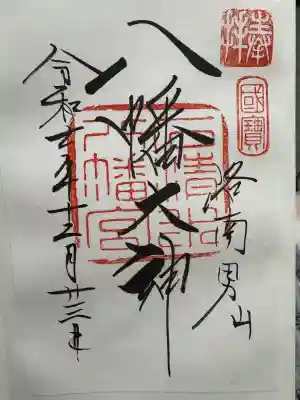 奉拝
國寶
洛南男山
八幡大神
石清水
八幡宮
令和五年十二月廿三日